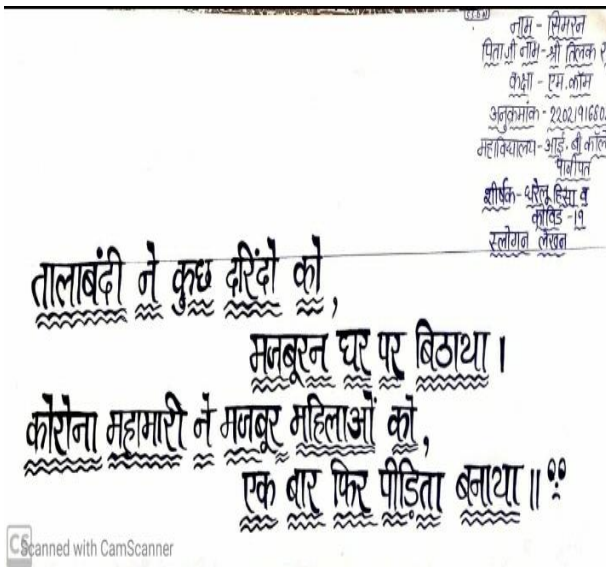 नाम - सिमरन
पिताजी नाम - श्री तिलक
कक्षा - एम.कॉम
अनुक्रमांक - 2202191680
महाविद्यालय - आई.बी कॉलेज
पानीपत
शीर्षक - घरेलू हिंसा व
कोविड -19
स्लोगन लेखन
तालाबंदी ने कुछ दरिंदो को,
मजबूरन घर पर बिठाया।
कोरोना महामारी ने मजबूर महिलाओं को,
एक बार फिर पीड़िता बनाया॥
CS Scanned with CamScanner